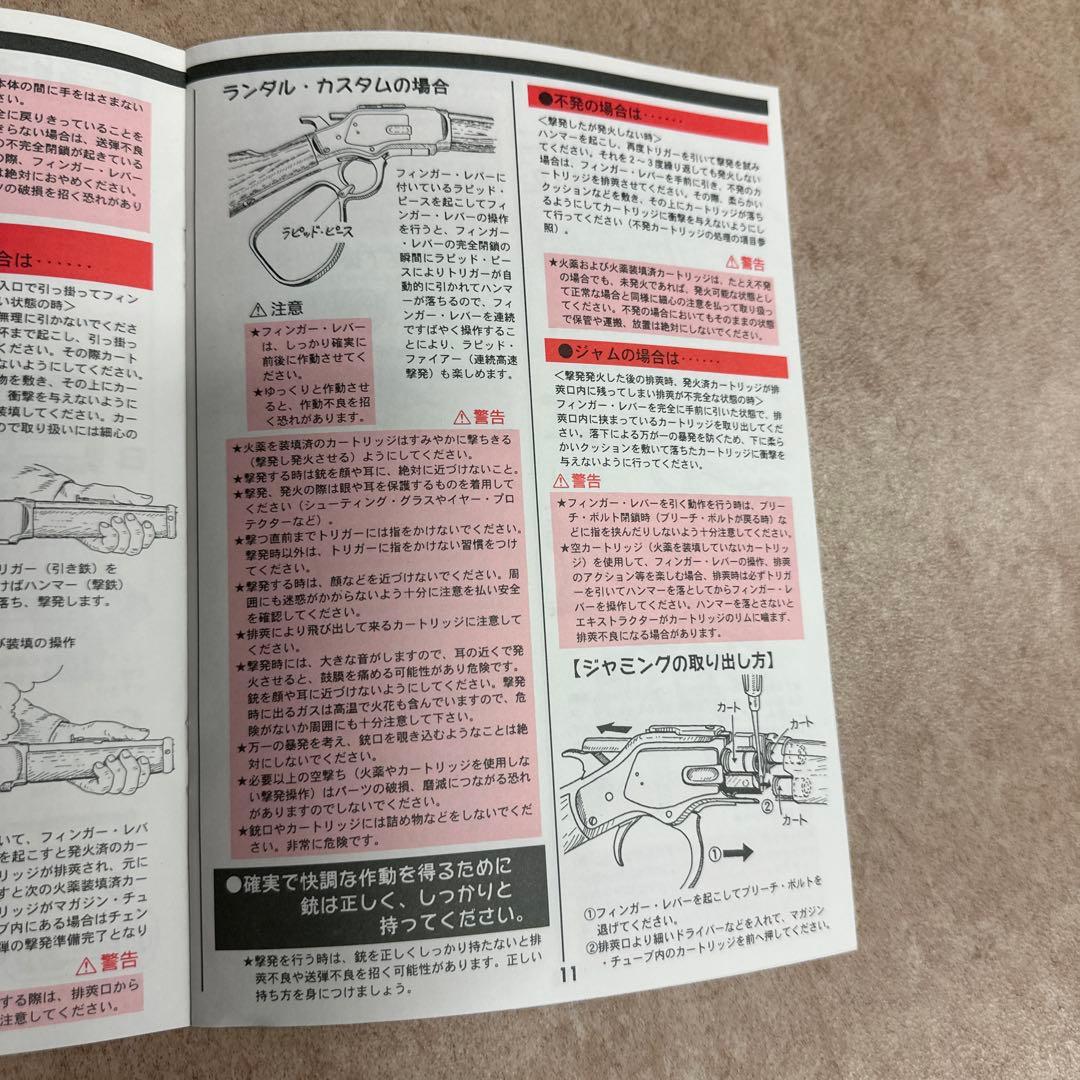 本体の間に手をはさまない
さい。
全に戻りきっていることを
きらない場合は、送弾不良
の不完全閉鎖が起きている
の際、フィンガー・レバー
は絶対におやめください。
ツの破損を招く恐れがあり
合は‥‥‥
入口で引っ掛ってフィン
い状態の時＞
無理に引かないでくださ
杯まで起こし、引っ掛っ
ください。その際カート
ないようにしてください。
物を敷き、その上にカー
、衝撃を与えないように
装填してください。カー
ので取り扱いには細心の
リガー（引き鉄）を
けばハンマー（撃鉄）
落ち、撃発します。
び装填の操作
いて、フィンガー・レバ
を起こすと発火済のカー
リッジが排莢され、元に
すと次の火薬装填済カー
リッジがマガジン・チュ
ブ内にある場合はチェン
弾の撃発準備完了となり
⚠警告
する際は、排莢口から
注意してください。
ランダル・カスタムの場合
ラピッド・ピース
フィンガー・レバーに
付いているラピッド・
ピースを起こしてフィ
ンガー・レバーの操作
を行うと、フィンガー
・レバーの完全閉鎖の
瞬間にラピッド・ピー
スによりトリガーが自
動的に引かれてハンマ
ーが落ちるので、フィ
ンガー・レバーを連続
ですばやく操作するこ
とにより、ラピッド・
ファイアー（連続高速
撃発）も楽しめます。
⚠注意
★フィンガー・レバー
は、しっかり確実に
前後に作動させてく
ださい。
★ゆっくりと作動させ
ると、作動不良を招
く恐れがあります。
⚠警告
★火薬を装填済のカートリッジはすみやかに撃ちきる
（撃発し発火させる）ようにしてください。
★撃発する時は銃を顔や耳に、絶対に近づけないこと。
★撃発、発火の際は眼や耳を保護するものを着用して
ください（シューティング・グラスやイヤー・プロ
テクターなど）。
★撃つ直前までトリガーには指をかけないでください。
撃発時以外は、トリガーに指をかけない習慣をつけ
てください。
★撃発する時は、顔などを近づけないでください。周
囲にも迷惑がかからないよう十分に注意を払い安全
を確認してください。
★排莢により飛び出して来るカートリッジに注意して
ください。
★撃発時には、大きな音がしますので、耳の近くで発
火させると、鼓膜を痛める可能性があり危険です。
銃を顔や耳に近づけないようにしてください。撃発
時に出るガスは高温で火花も含んでいますので、危
険がないか周囲にも十分注意して下さい。
★万一の暴発を考え、銃口を覗き込むようなことは絶
対にしないでください。
★必要以上の空撃ち（火薬やカートリッジを使用しな
い撃発操作）はパーツの破損、磨滅につながる恐れ
がありますのでしないでください。
★銃口やカートリッジには詰め物などをしないでくだ
さい。非常に危険です。
●確実で快調な作動を得るために
銃は正しく、しっかりと
持ってください。
★撃発を行う時は、銃を正しくしっかり持たないと排
莢不良や送弾不良を招く可能性があります。正しい
持ち方を身につけましょう。
●不発の場合は‥‥‥
＜撃発したが発火しない時＞
ハンマーを起こし、再度トリガーを引いて撃発を試み
てください。それを２～３度繰り返しても発火しない
場合は、フィンガー・レバーを手前に引き、不発のカ
ートリッジを排莢させてください。その際、柔らかい
クッションなどを敷き、その上にカートリッジが落ち
るようにしてカートリッジに衝撃を与えないようにし
て行ってください（不発カートリッジの処理の項目参
照）。
⚠警告
★火薬および火薬装填済カートリッジは、たとえ不発
の場合でも、未発火であれば、発火可能な状態とし
て正常な場合と同様に細心の注意を払って取り扱っ
てください。不発の場合においてもそのままの状態
で保管や運搬、放置は絶対にしないでください。
●ジャムの場合は‥‥‥
＜撃発発火した後の排莢時、発火済カートリッジが排
莢口内に残ってしまい排莢が不完全な状態の時＞
フィンガー・レバーを完全に手前に引いた状態で、排
莢口内に挟まっているカートリッジを取り出してくだ
さい。落下による万が一の暴発を防ぐため、下に柔ら
かいクッションを敷いて落ちたカートリッジに衝撃を
与えないように行ってください。
⚠警告
★フィンガー・レバーを引く動作を行う時は、ブリー
チ・ボルト閉鎖時（ブリーチ・ボルトが戻る時）な
どに指を挟んだりしないよう十分注意してください。
★空カートリッジ（火薬を装填していないカートリッ
ジ）を使用して、フィンガー・レバーの操作、排莢
のアクション等を楽しむ場合、排莢時は必ずトリガ
ーを引いてハンマーを落としてからフィンガー・レ
バーを操作してください。ハンマーを落とさないと
エキストラクターがカートリッジのリムに噛まず、
排莢不良になる場合があります。
【ジャミングの取り出し方】
カート
カート
②
カート
①
①フィンガー・レバーを起こしてブリーチ・ボルトを
退げてください。
②排莢口より細いドライバーなどを入れて、マガジン
・チューブ内のカートリッジを前へ押してください。
11